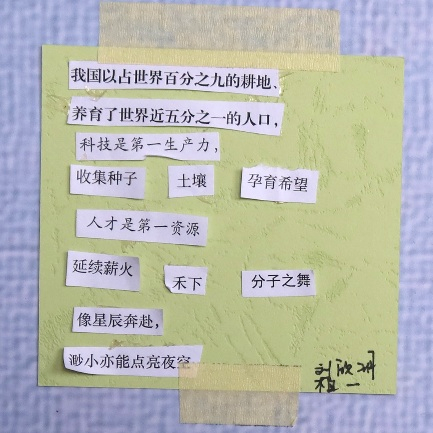 我国以占世界百分之九的耕地、
养育了世界近五分之一的人口，
科技是第一生产力，
收集种子 土壤 孕育希望
人才是第一资源
延续薪火 禾下 分子之舞
像星辰奔赴，
渺小亦能点亮夜空
刘欣
一